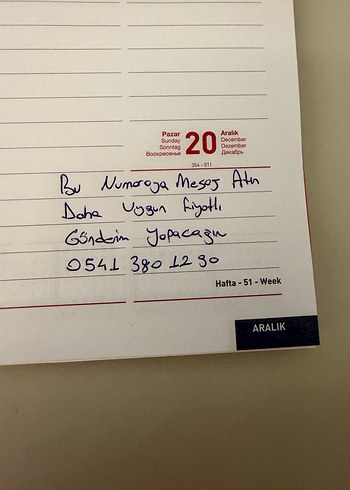 Pazar
Sunday
Sonntag
Воскресенье
20
Aralık
December
Dezember
Декабрь
354 - 011
Bu Numaraya Mesaj Atın
Daha Uygun Fiyatlı
Gönderim Yapacağın
0541 380 12 90
Hafta - 51 - Week
ARALIK